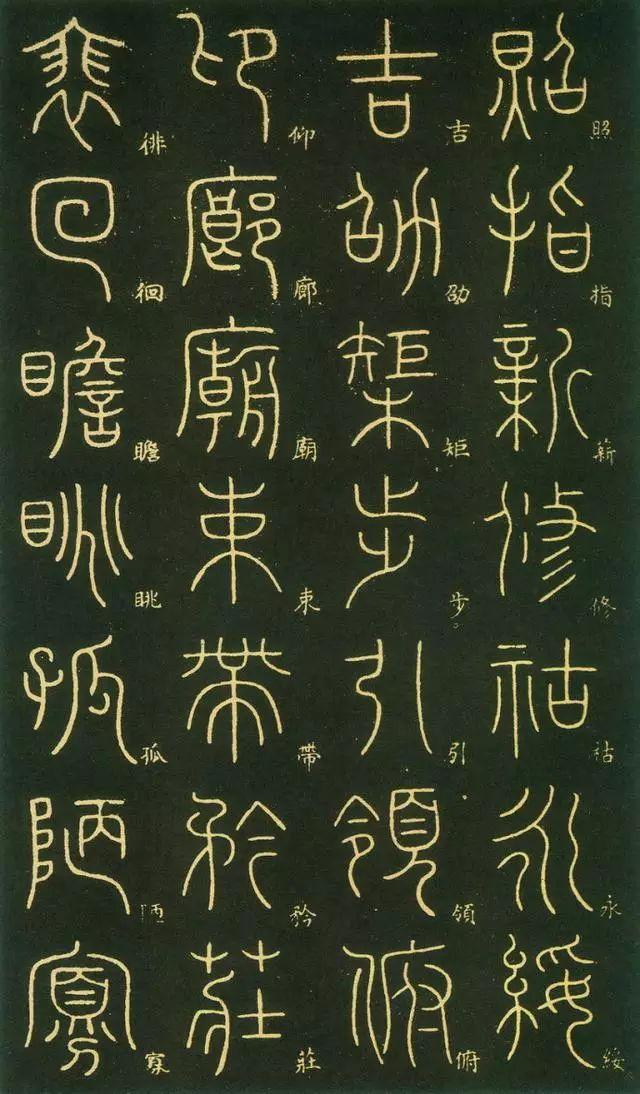 照指薪修祜永綏
吉劭矩步引領俯
仰廊廟束帶矜莊
徘徊瞻眺孤陋寡